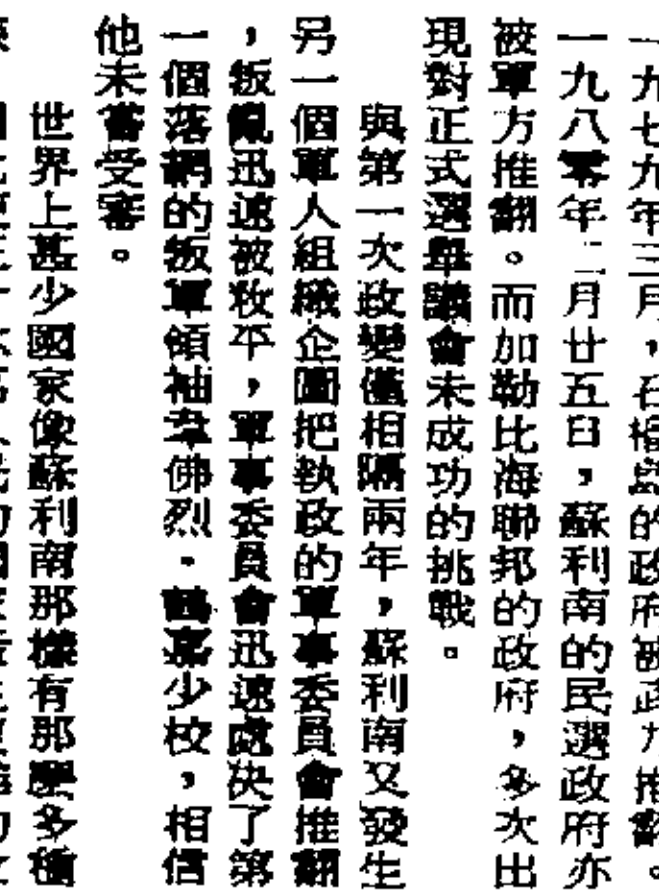 一九七九年三月，在福島的政府被武力推翻。
一九八零年二月廿五日，蘇利南的民選政府亦
被軍方推翻。而加勒比海聯邦的政府，多次出
現對正式選舉議會未成功的挑戰。
與第一次政變僅相隔兩年，蘇利南又發生
另一個軍人組織企圖把執政的軍事委員會推翻
，叛亂迅速被敉平，軍事委員會迅速處決了第
一個落網的叛軍領袖韋佛烈．嘉少校，相信
他未嘗受審。
世界上甚少國家像蘇利南那樣有那麼多種